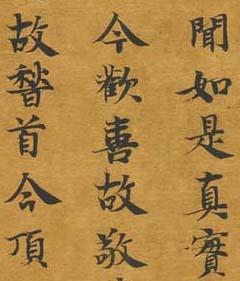 聞如是真實
今歡喜故敬
故稽首今頂